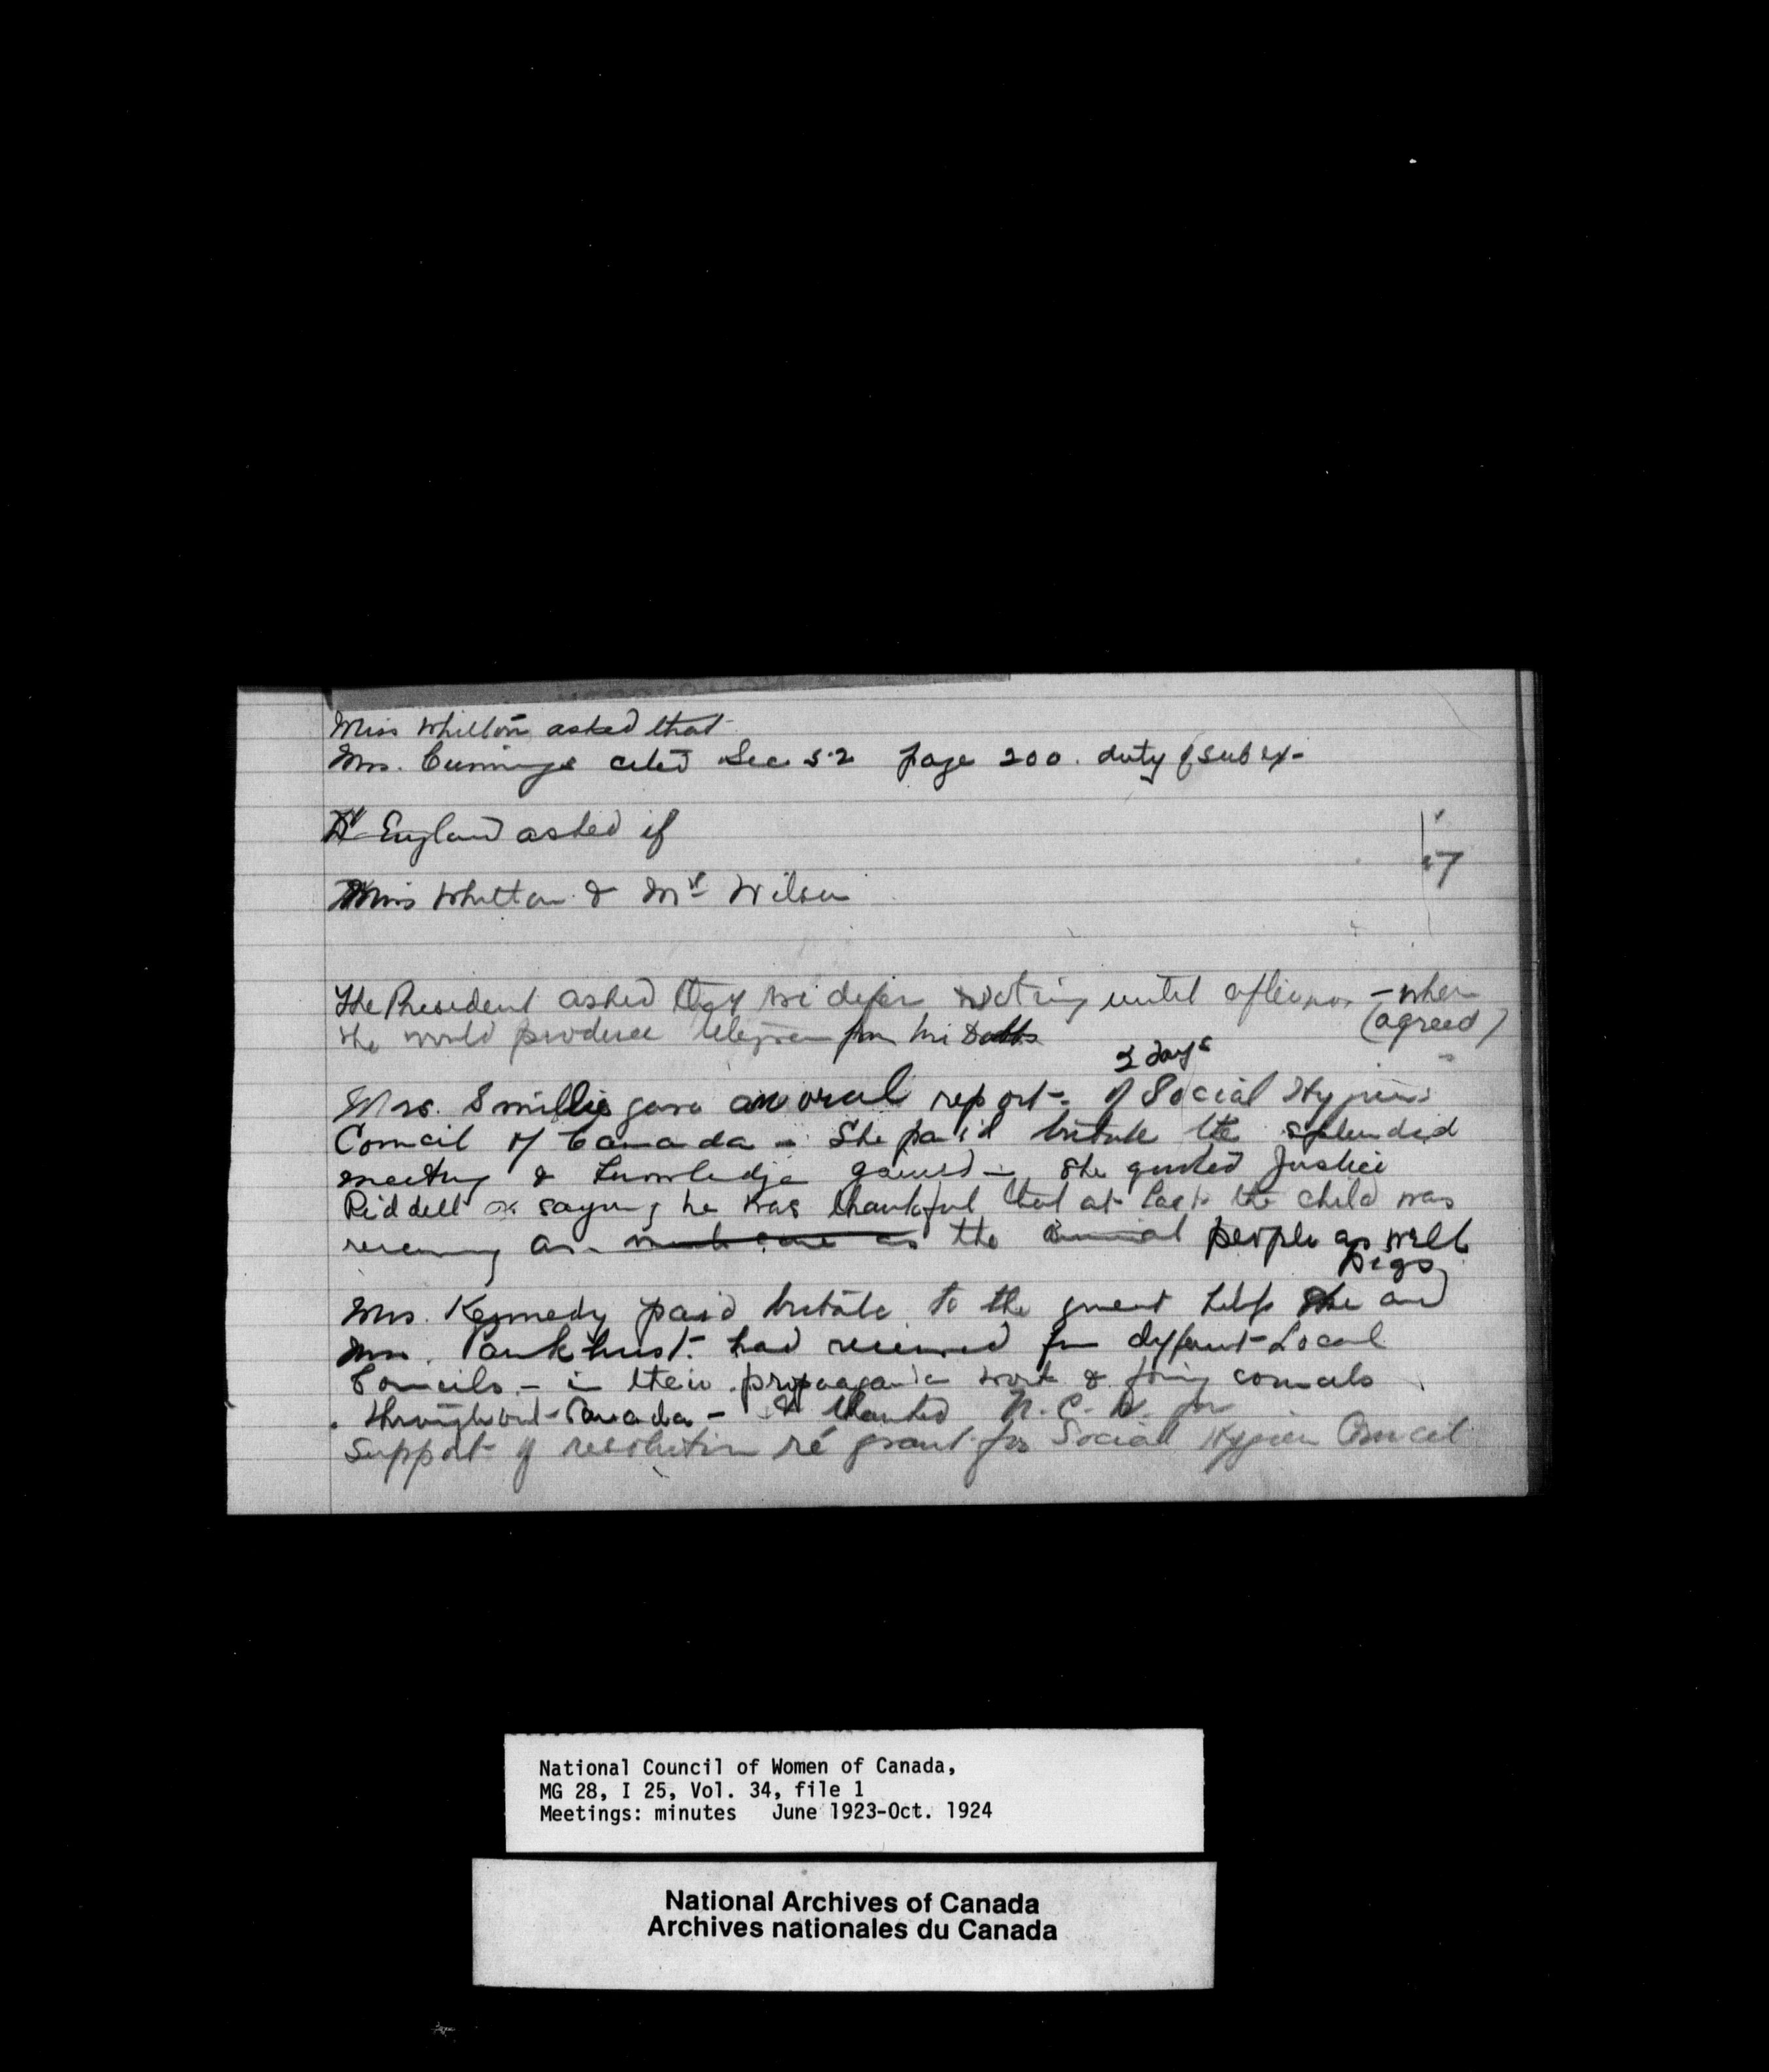 Miss Whitton asked that
Mrs. Cummings cited Sec 52 page 200. duty of sub ex-
Dr England asked if
Miss Whitton & Mrs Wilson
17
The President asked that we defer voting until afternoon - when
she would produce telegram from
(agreed)
2 days
Mrs. Smillie gave an oral report - of Social Hygiene
Council of Canada - She paid tribute the splendid
meeting & knowledge gained - She quoted Justice
Riddell as saying he was thankful that at last the child was
receiving as much care as the people as well
pigs
Mrs. Kennedy paid tribute to the great help she and
Mrs. Pankhurst had received from different Local
Councils - in their propaganda work & forming councils
throughout Canada - & thanked N.C.W. for
support of resolution ré grant for Social Hygiene Council
National Council of Women of Canada,
MG 28, I 25, Vol. 34, file 1
Meetings: minutes June 1923-Oct. 1924
National Archives of Canada
Archives nationales du Canada